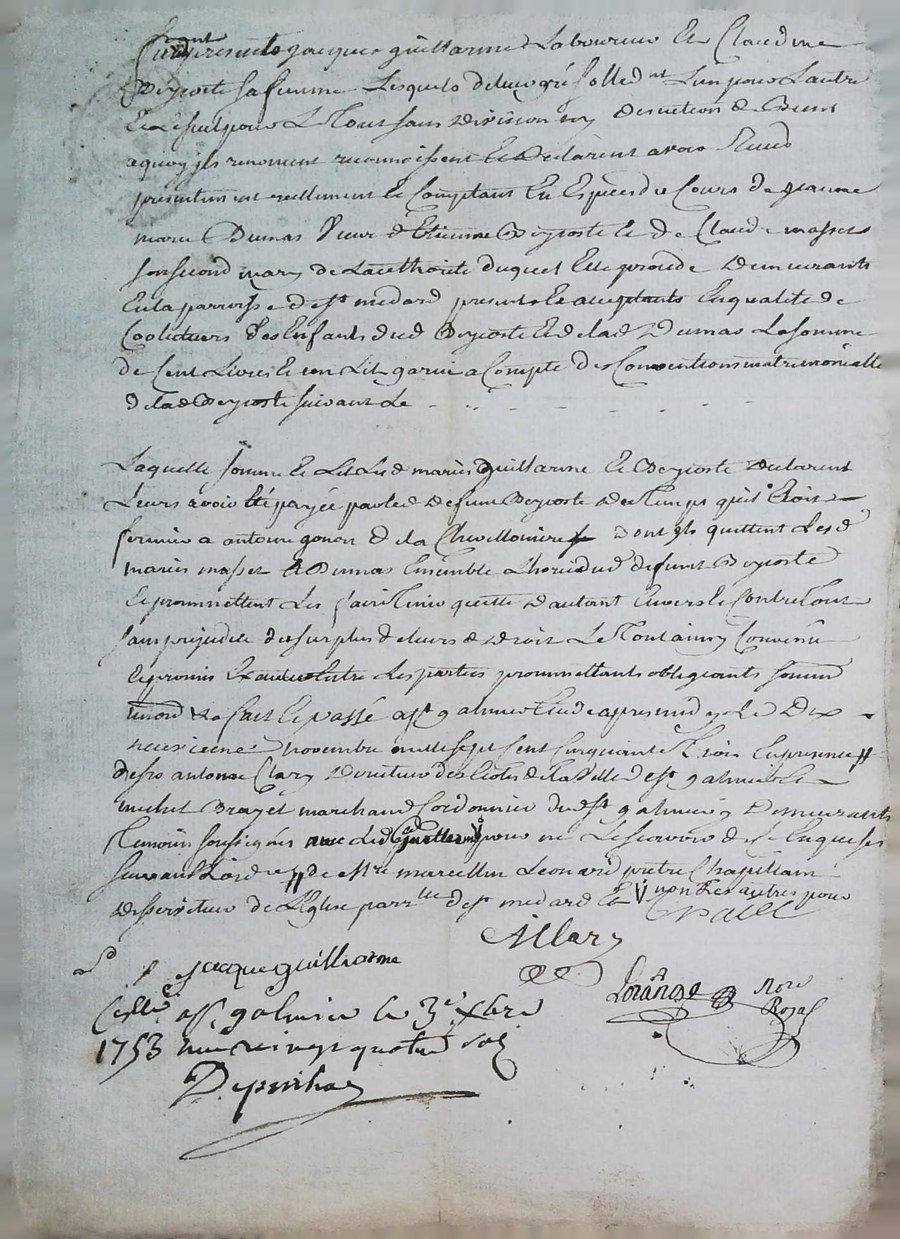 Furent presents jacques guillarme Laboureur Et Claudine
Beyssote sa femme Lesquels de leur gré solled.nt L'un pour L'autre
Et Le seul pour Le Tout sans division ny discution de Biens
aquoy ils renoncent reconnoissent Et Declarent avoir Receu
presentement reellement Et Comptant En Especes de Cours de jeanne
marie Dumas Veuve d'Etienne Beyssote Et de Claude masset
son second mary de Lauthorite duquel Elle procede Demeurants
En la parroisse de st medard presents Et acceptants En qualité de
des Enfants dud Beyssote Et de lad Dumas La somme
de Cent Livres Et un Lit garni a Compte des Conventions matrimonialle
de lad Beyssote suivant Le
Laquelle somme Et Lit Lesd mariés guillarme Et Beyssote Declarent
Leurs avoir Eté payée par led Defunt Beyssote du Temps qu'il Etoit
fermier a antoine gonon de la Chevillonniere dont ils quittent Lesd
mariés masset Et Dumas Ensemble L'hoirie dud defunt Beyssote
Et promettent Les faire Tenir quitte d'autant Envers Et Contre Tous
sans prejudice du surplus de leurs d Droits Le Tout ainsy Convenu
Et promis Entre Les parties promettants obligeants soumett
renond &a fait Et passé a st galmier Etude apres midy Le Dix
neuvieme novembre mille sept Cent Cinquante Trois En presence
de sr antoine Clary Directeur des Ecoles de la Ville de st galmier Et
michel Brazet marchand Cordonnier dud st galmier y Demeurants
Temoins soussignés avec Led guillarme pour ne Le scavoir de Ce Enquis
suivant L'ord // de Mre marcellin Leonard pretre Chapellain
Desserviteur de L'Eglise parr.lle de st medard Et non Les autres pour
Brazet
Allary
jacque guilliarme
Lorange Nore Royal
Collé a st galmier Le 3e Xbre
1753 vingt quatre sols
Depeirha